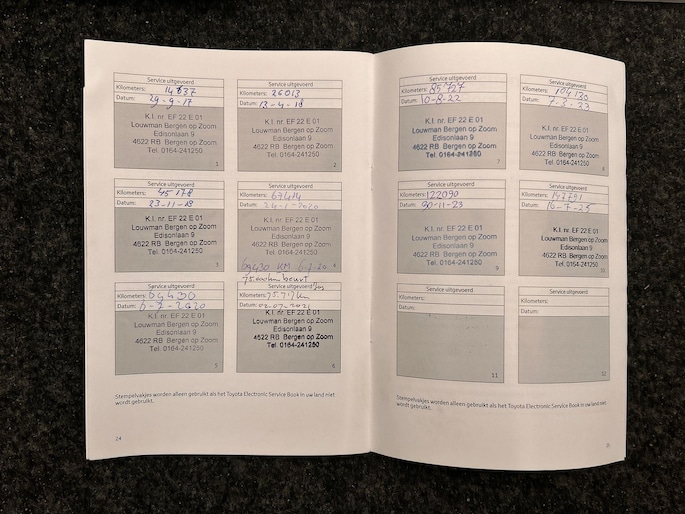 Service uitgevoerd
Kilometers: 14837
Datum: 29-9-17
K.I. nr. EF 22 E 01
Louwman Bergen op Zoom
Edisonlaan 9
4622 RB Bergen op Zoom
Tel. 0164-241250
1
Service uitgevoerd
Kilometers: 26013
Datum: 13-4-18
K.I. nr. EF 22 E 01
Louwman Bergen op Zoom
Edisonlaan 9
4622 RB Bergen op Zoom
Tel. 0164-241250
2
Service uitgevoerd
Kilometers: 45178
Datum: 23-11-18
K.I. nr. EF 22 E 01
Louwman Bergen op Zoom
Edisonlaan 9
4622 RB Bergen op Zoom
Tel. 0164-241250
3
Service uitgevoerd
Kilometers: 67414
Datum: 24-1-2020
K.I. nr. EF 22 E 01
Louwman Bergen op Zoom
Edisonlaan 9
4622 RB Bergen op Zoom
Tel. 0164-241250
69430 KM 6-7-20
4
Service uitgevoerd
Kilometers:
Datum: 6-7-2020
K.I. nr. EF 22 E 01
Louwman Bergen op Zoom
Edisonlaan 9
4622 RB Bergen op Zoom
Tel. 0164-241250
5
Service uitgevoerd
Kilometers:
Datum: 02-07-2021
K.I. nr. EF 22 E 01
Louwman Bergen op Zoom
Edisonlaan 9
4622 RB Bergen op Zoom
Tel. 0164-241250
6
Stempelvakjes worden alleen gebruikt als het Toyota Electronic Service Book in uw land niet
wordt gebruikt.
24
Service uitgevoerd
Kilometers: 85727
Datum: 10-8-22
K.I. nr. EF 22 E 01
Louwman Bergen op Zoom
Edisonlaan 9
4622 RB Bergen op Zoom
Tel. 0164-241250
7
Service uitgevoerd
Kilometers: 104130
Datum:
K.I. nr. EF 22 E 01
Louwman Bergen op Zoom
Edisonlaan 9
4622 RB Bergen op Zoom
Tel. 0164-241250
8
Service uitgevoerd
Kilometers: 122090
Datum: 30-11-23
K.I. nr. EF 22 E 01
Louwman Bergen op Zoom
Edisonlaan 9
4622 RB Bergen op Zoom
Tel. 0164-241250
9
Service uitgevoerd
Kilometers:
Datum: 16-7-25
K.I. nr. EF 22 E 01
Louwman Bergen op Zoom
Edisonlaan 9
4622 RB Bergen op Zoom
Tel. 0164-241250
10
Service uitgevoerd
Kilometers:
Datum:
11
Service uitgevoerd
Kilometers:
Datum:
12
Stempelvakjes worden alleen gebruikt als het Toyota Electronic Service Book in uw land niet
wordt gebruikt.